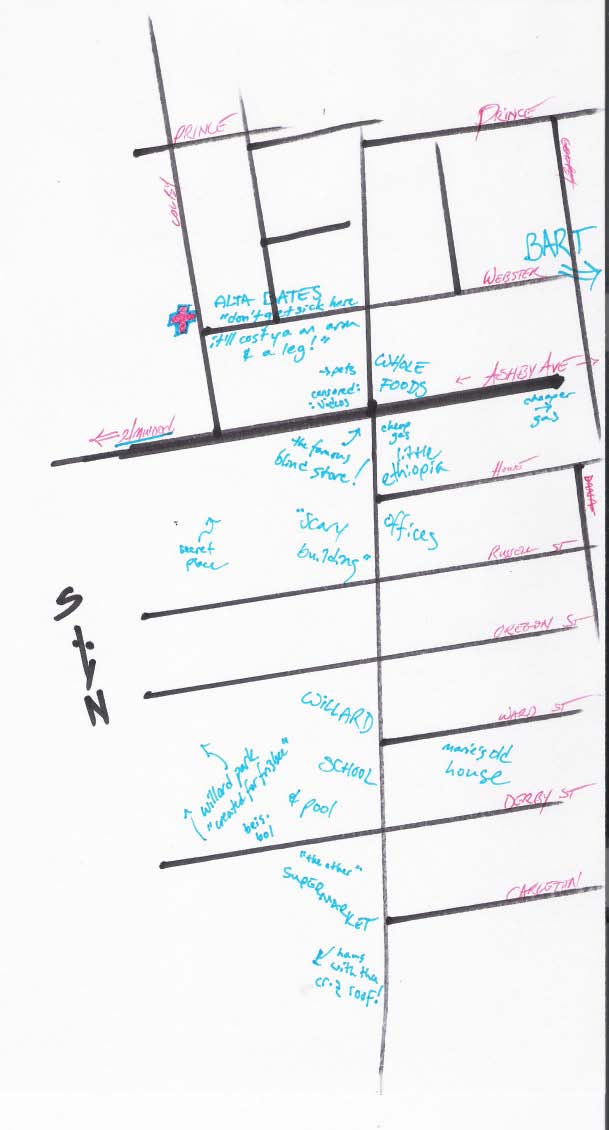 PRINCE
PRINCE
COLBY
BART
WEBSTER
ALTA BATES
"don't get sick here
it'll cost ya an arm
& a leg!"
→pets
censored:
:videos
WHOLE
FOODS
← ASHBY AVE →
cheaper
→
gas
← elmwood
the famous
blind store!
cheap
gas
little
ethiopia
secret
place
"scary
building"
offices
RUSSELL ST
S
N
OREGON ST
WILLARD
SCHOOL
& pool
WARD ST
marie's old
house
willard park
"created for frisbee"
beis.
bol
DERBY ST
"the other"
SUPERMARKET
CARLETON
with the
roof!